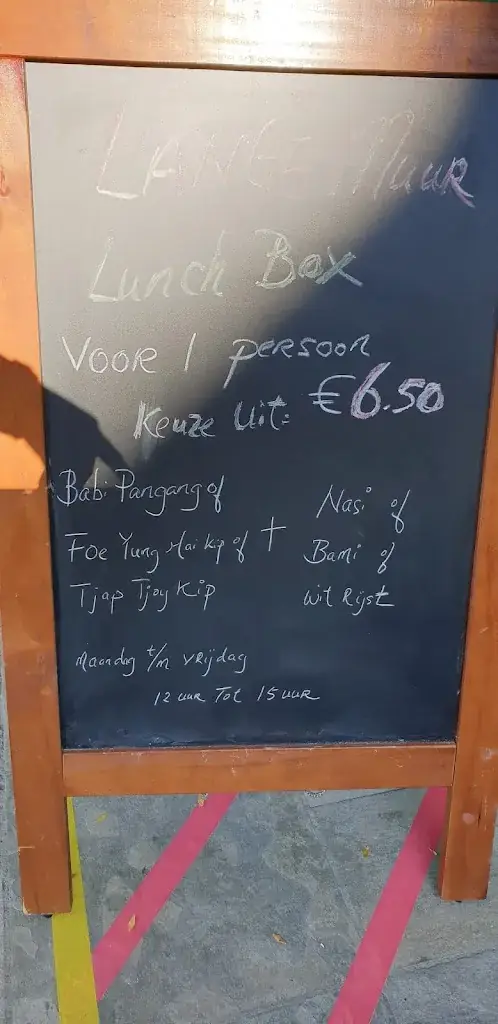 LANGE MUUR
Lunch Box
VOOR 1 persoon
Keuze Uit: €6.50
Babi Pangang of
Foe Yung Hai kip of
Tjap Tjoy Kip
+
Nasi of
Bami of
wit Rijst
maandag t/m vrijdag
12 uur Tot 15 uur